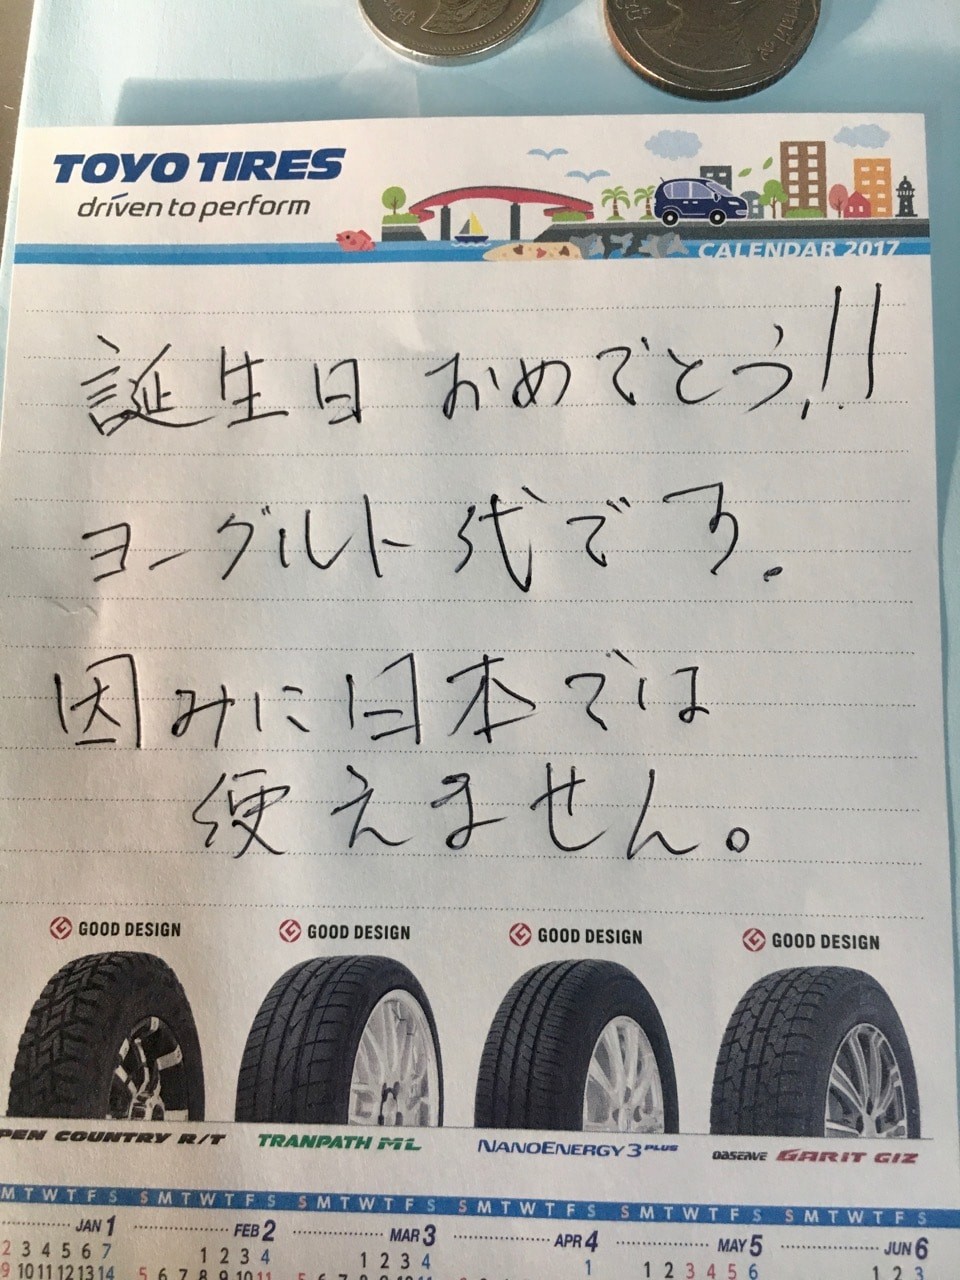 TOYO TIRES
driven to perform
CALENDAR 2017
誕生日 おめでとう!!
ヨーグルト代です.
因みに日本では
使えません。
GOOD DESIGN GOOD DESIGN GOOD DESIGN GOOD DESIGN
PEN COUNTRY R/T TRANPATH ML NANOENERGY 3 PLUS OBSERVE GARIT GIZ
M T W T F S S M T W T F S S M T W T F S S M T W T F S S M T W T F S S M T W T F S
JAN 1 FEB 2 MAR 3 APR 4 MAY 5 JUN 6
2 3 4 5 6 7 1 2 3 4 1 2 3 4 1 1 2 3 4 5 6 1 2 3
9 10 11 12 13 14 5 6 7 8 9 10 11